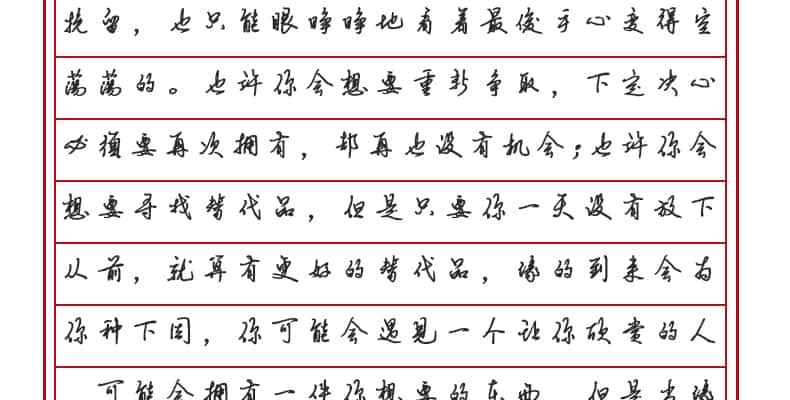 挽留，也只能眼睁睁地看着最後手心变得空
荡荡的。也许你会想要重新争取，下定决心
必须要再次拥有，却再也没有机会；也许你会
想要寻找替代品，但是只要你一天没有放下
从前，就算有更好的替代品，缘的到来会为
你种下因，你可能会遇见一个让你欣赏的人
可能会拥有一件你想要的东西 但是当缘